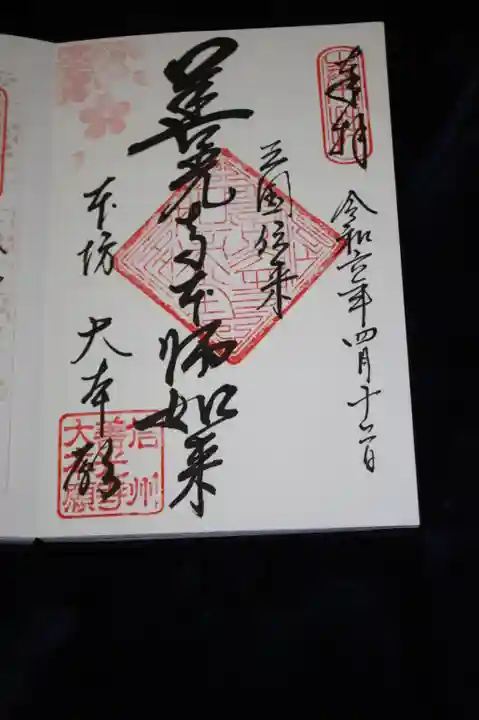 奉拝
令和六年四月十二日
三国伝来
善光寺本師如来
本坊 大本願
信州
善光寺
大本願